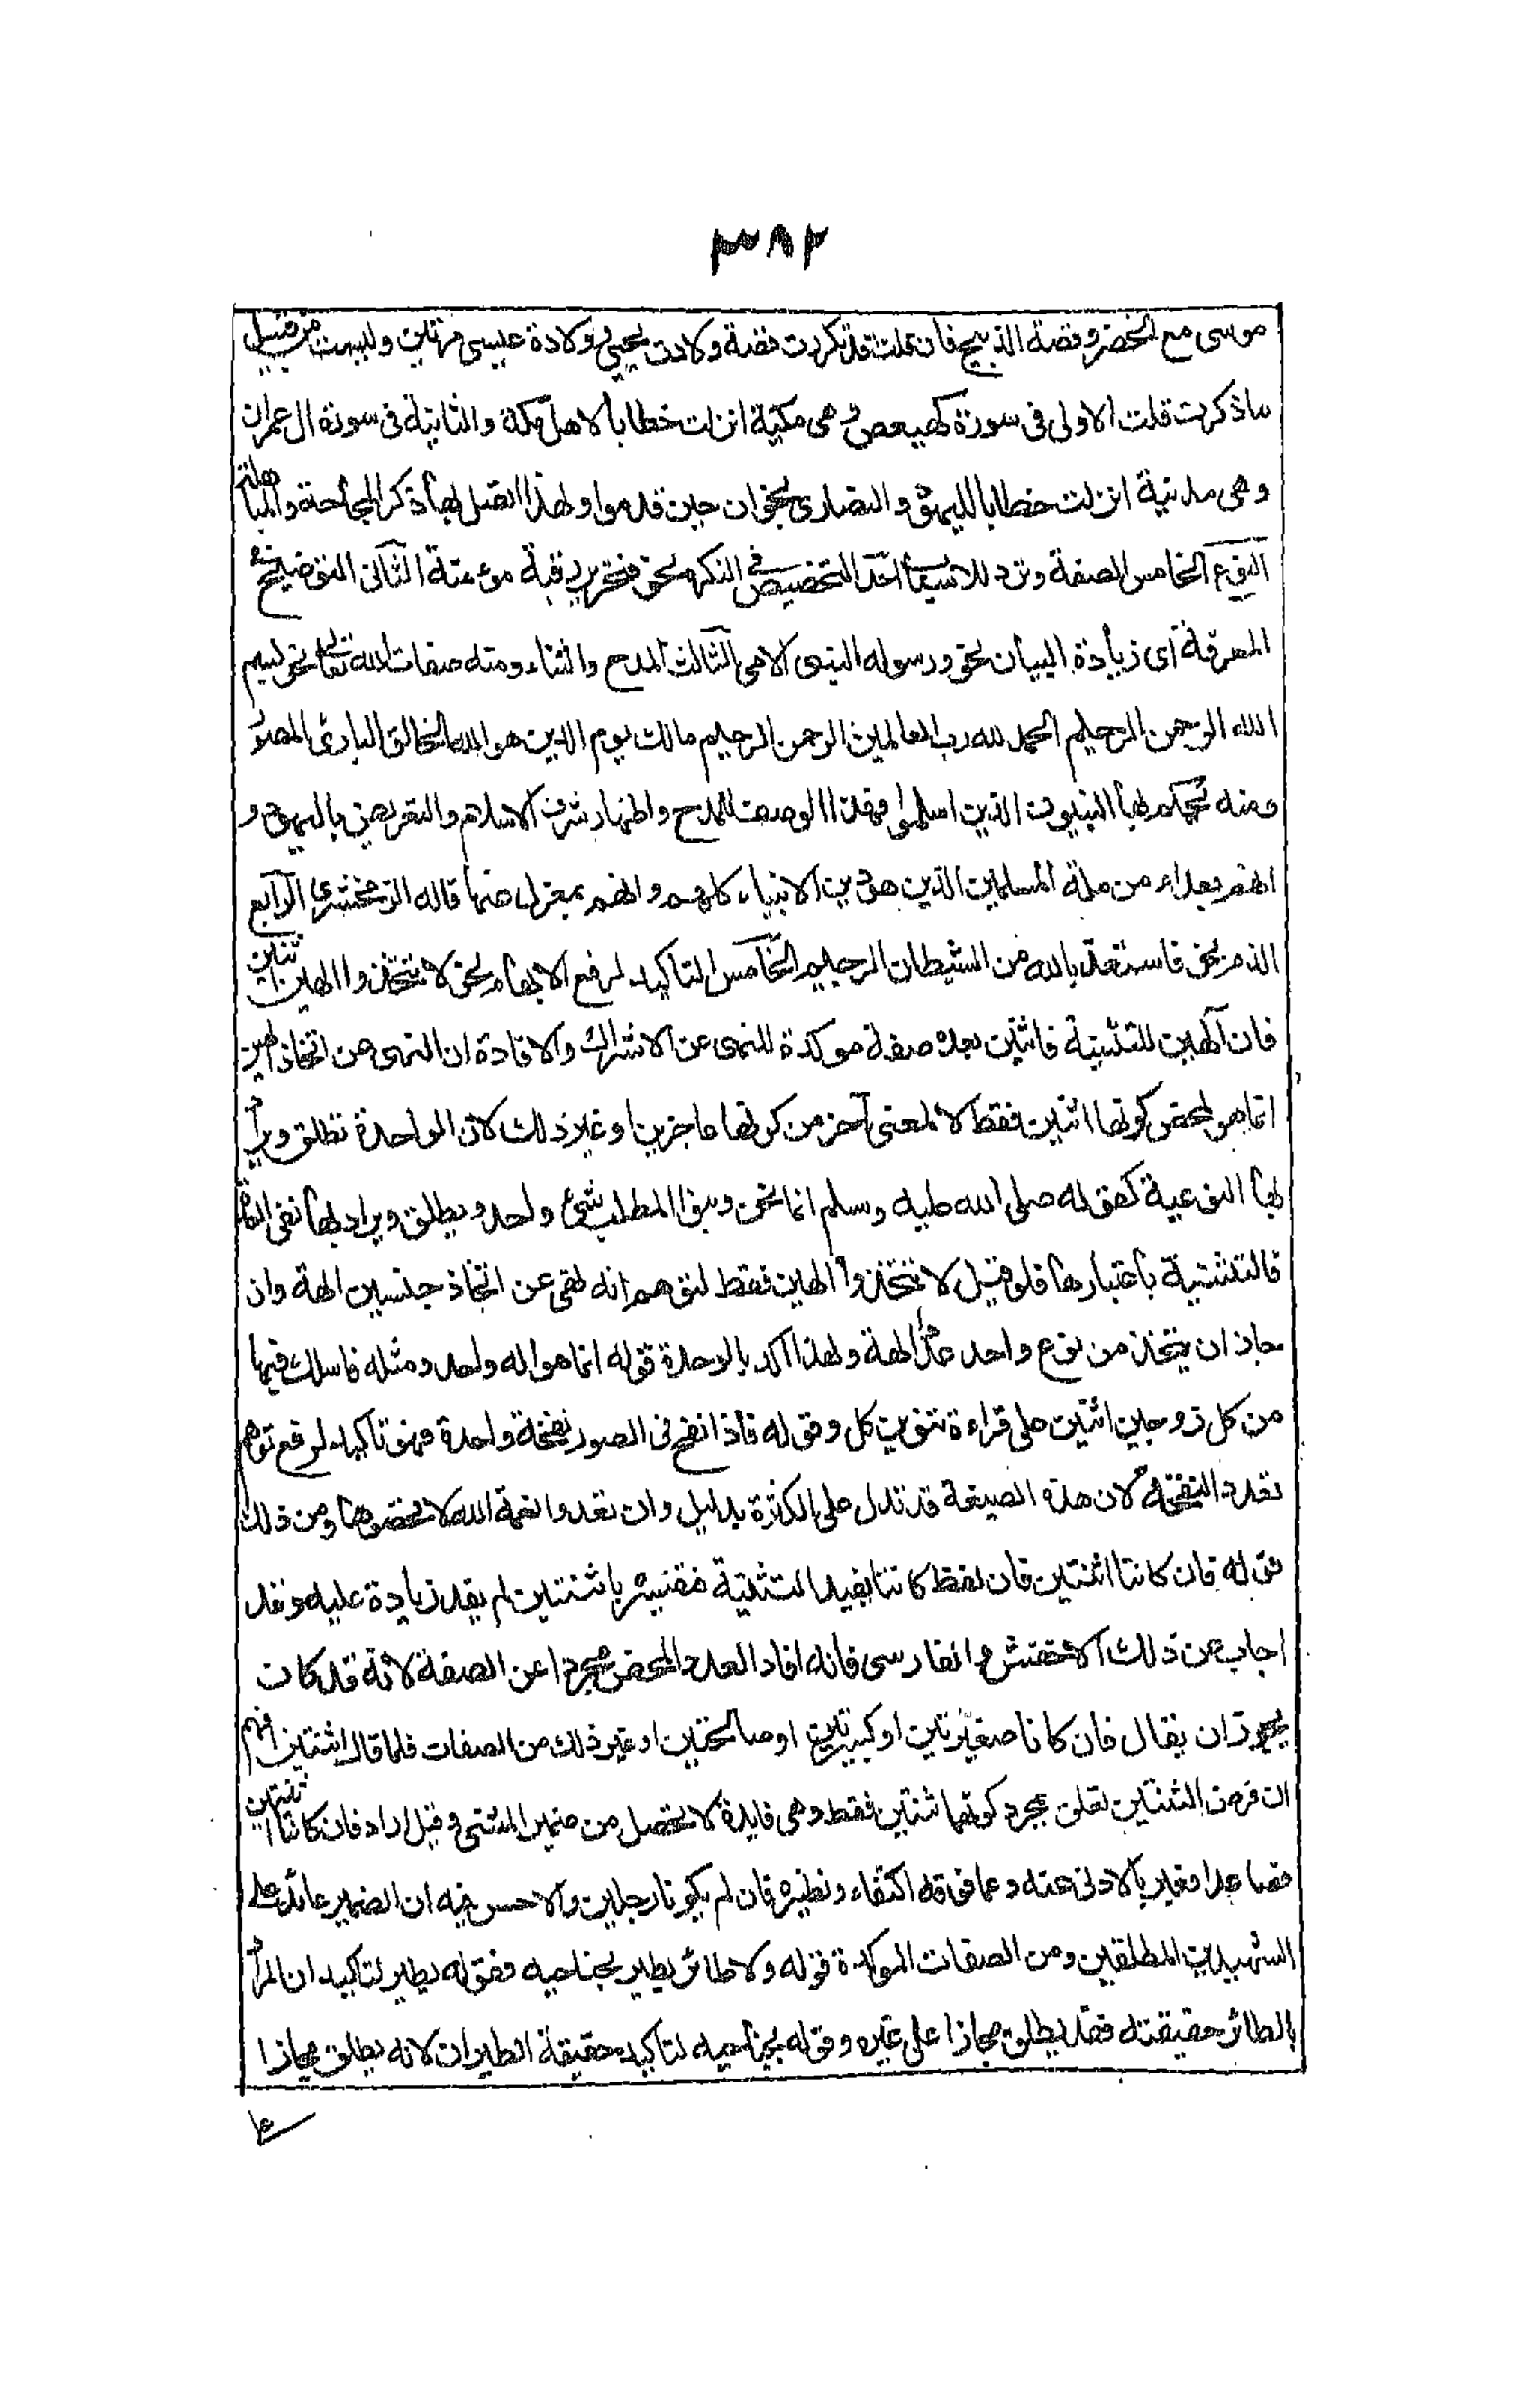 ٣٨٢
موسى مع الخضر وقصة الذبيح فان قلت قد تكررت قصة ولادت يحيى وولادة عيسى مرتين وليست من قبيل
ما ذكرت قلت الاولى فى سورة كهيعص وهى مكية انزلت خطابا لاهل مكة والثانية فى سورة ال عمران
وهى مدنية انزلت خطابا لليهود والنصارى نجران حين قدموا ولهذا اتصل بها ذكر المحاجة والمباهلة
النوع الخامس الصفة وترد للاسباب احدا التخصيص فى النكره نحو فتحرير رقبة مؤمنة الثانى التوضيح فى
المعرفة اى زيادة البيان نحو ورسوله النبى الامى الثالث المدح والثناء ومنه صفات الله تعالى نحو بسم
الله الرحمن الرحيم الحمد لله رب العالمين الرحمن الرحيم مالك يوم الدين هو الله الخالق البارئ المصور
ومنه يحكم بها النبيون الذين اسلموا فهذا الوصف للمدح واظهار شرف الاسلام والتعريض باليهود و
انهم بعداء من ملة المسلمين الذين هو دين الانبياء كلهم وانهم بمعزل عنها قاله الزمخشرى الرابع
الذم نحو فاستعذ بالله من الشيطان الرجيم الخامس التاكيد لرفع الايهام نحو لا تتخذوا الهين اثنين
فان آلهين للتثنية فاثنين بعده صفة موكدة للنهى عن الاشراك والافادة ان النهى عن اتخاذ الهين
انما هو لمحض كونهما اثنين فقط لا لمعنى آخر من كونهما عاجزين او غير ذلك لان الواحدة تطلق ويراد
بها النوعية كقوله صلى الله عليه وسلم انما نحن وبنو المطلب شئ واحد ويطلق ويراد بها نفى العدة
فالتثنية باعتبارها فلو قيل لا تتخذوا الهين فقط لتوهم انه نهى عن اتخاذ جنسين الهة وان
جاز ان يتخذ من نوع واحد عدد الهة ولهذا اكد بالوحدة قوله انما هو اله واحد ومثله فاسلك فيها
من كل زوجين اثنين على قراءة تنوين كل وقوله فاذا نفخ فى الصور نفخة واحدة فهو تاكيد لرفع توهم
تعدد النفخة لان هذه الصيغة قد تدل على الكثرة بدليل وان تعدوا نعمة الله لا تحصوها ومن ذلك
قوله فان كانتا اثنتين فان لفظ كانتا يفيد التثنية فتفسيره باثنتين لم يفد زيادة عليه وقد
اجاب عن ذلك الاخفش والفارسى فانه افاد العدد المحض مجردا عن الصفة لانه قد كان
يجوز ان يقال فان كانتا صغيرتين او كبيرتين او صالحتين او غير ذلك من الصفات فلما قال اثنتين افهم
ان فرض الثنتين تعلق بمجرد كونهما ثنتين فقط وهى فايدة لا تحصل من ضمير المثنى وقيل اراد فان كانتا اثنتين
فصاعدا فعبر بالادنى عنه وعما فوقه اكتفاء ونظيره فان لم يكونا رجلين والاحسن فيه ان الضمير عائد على
الشهيدين المطلقين ومن الصفات الموكدة قوله ولا طائر يطير بجناحيه فقوله يطير لتاكيد ان المراد
بالطائر حقيقته فقد يطلق مجازا على غيره وقوله بجناحيه لتاكيد حقيقة الطيران لانه يطلق مجازا